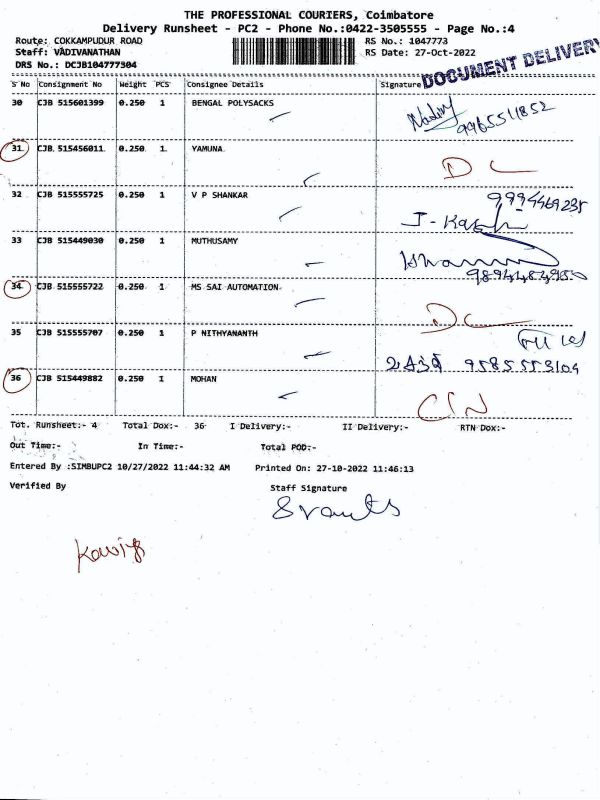 THE PROFESSIONAL COURIERS, Coimbatore
Delivery Runsheet - PC2 - Phone No.:0422-3505555 - Page No.:4
Route: COKKAMPUDUR ROAD
RS No.: 1047773
Staff: VADIVANATHAN
RS Date: 27-Oct-2022
DRS No.: DCJB104777304
DOCUMENT DELIVERY
S No Consignment No Weight PCS Consignee Details Signature
30 CJB 515601399 0.250 1 BENGAL POLYSACKS
9965511852
31 CJB 515456011 0.250 1 YAMUNA DL
32 CJB 515555725 0.250 1 V P SHANKAR
33 CJB 515449030 0.250 1 MUTHUSAMY
34 CJB 515555722 0.250 1 MS SAI AUTOMATION DL
35 CJB 515555707 0.250 1 P NITHYANANTH
9585553104
36 CJB 515449882 0.250 1 MOHAN CIN
Tot. Runsheet:- 4 Total Dox:- 36 I Delivery:- II Delivery:- RTN Dox:-
Out Time:- In Time:- Total POD:-
Entered By :SIMBUPC2 10/27/2022 11:44:32 AM Printed On: 27-10-2022 11:46:13
Verified By Staff Signature